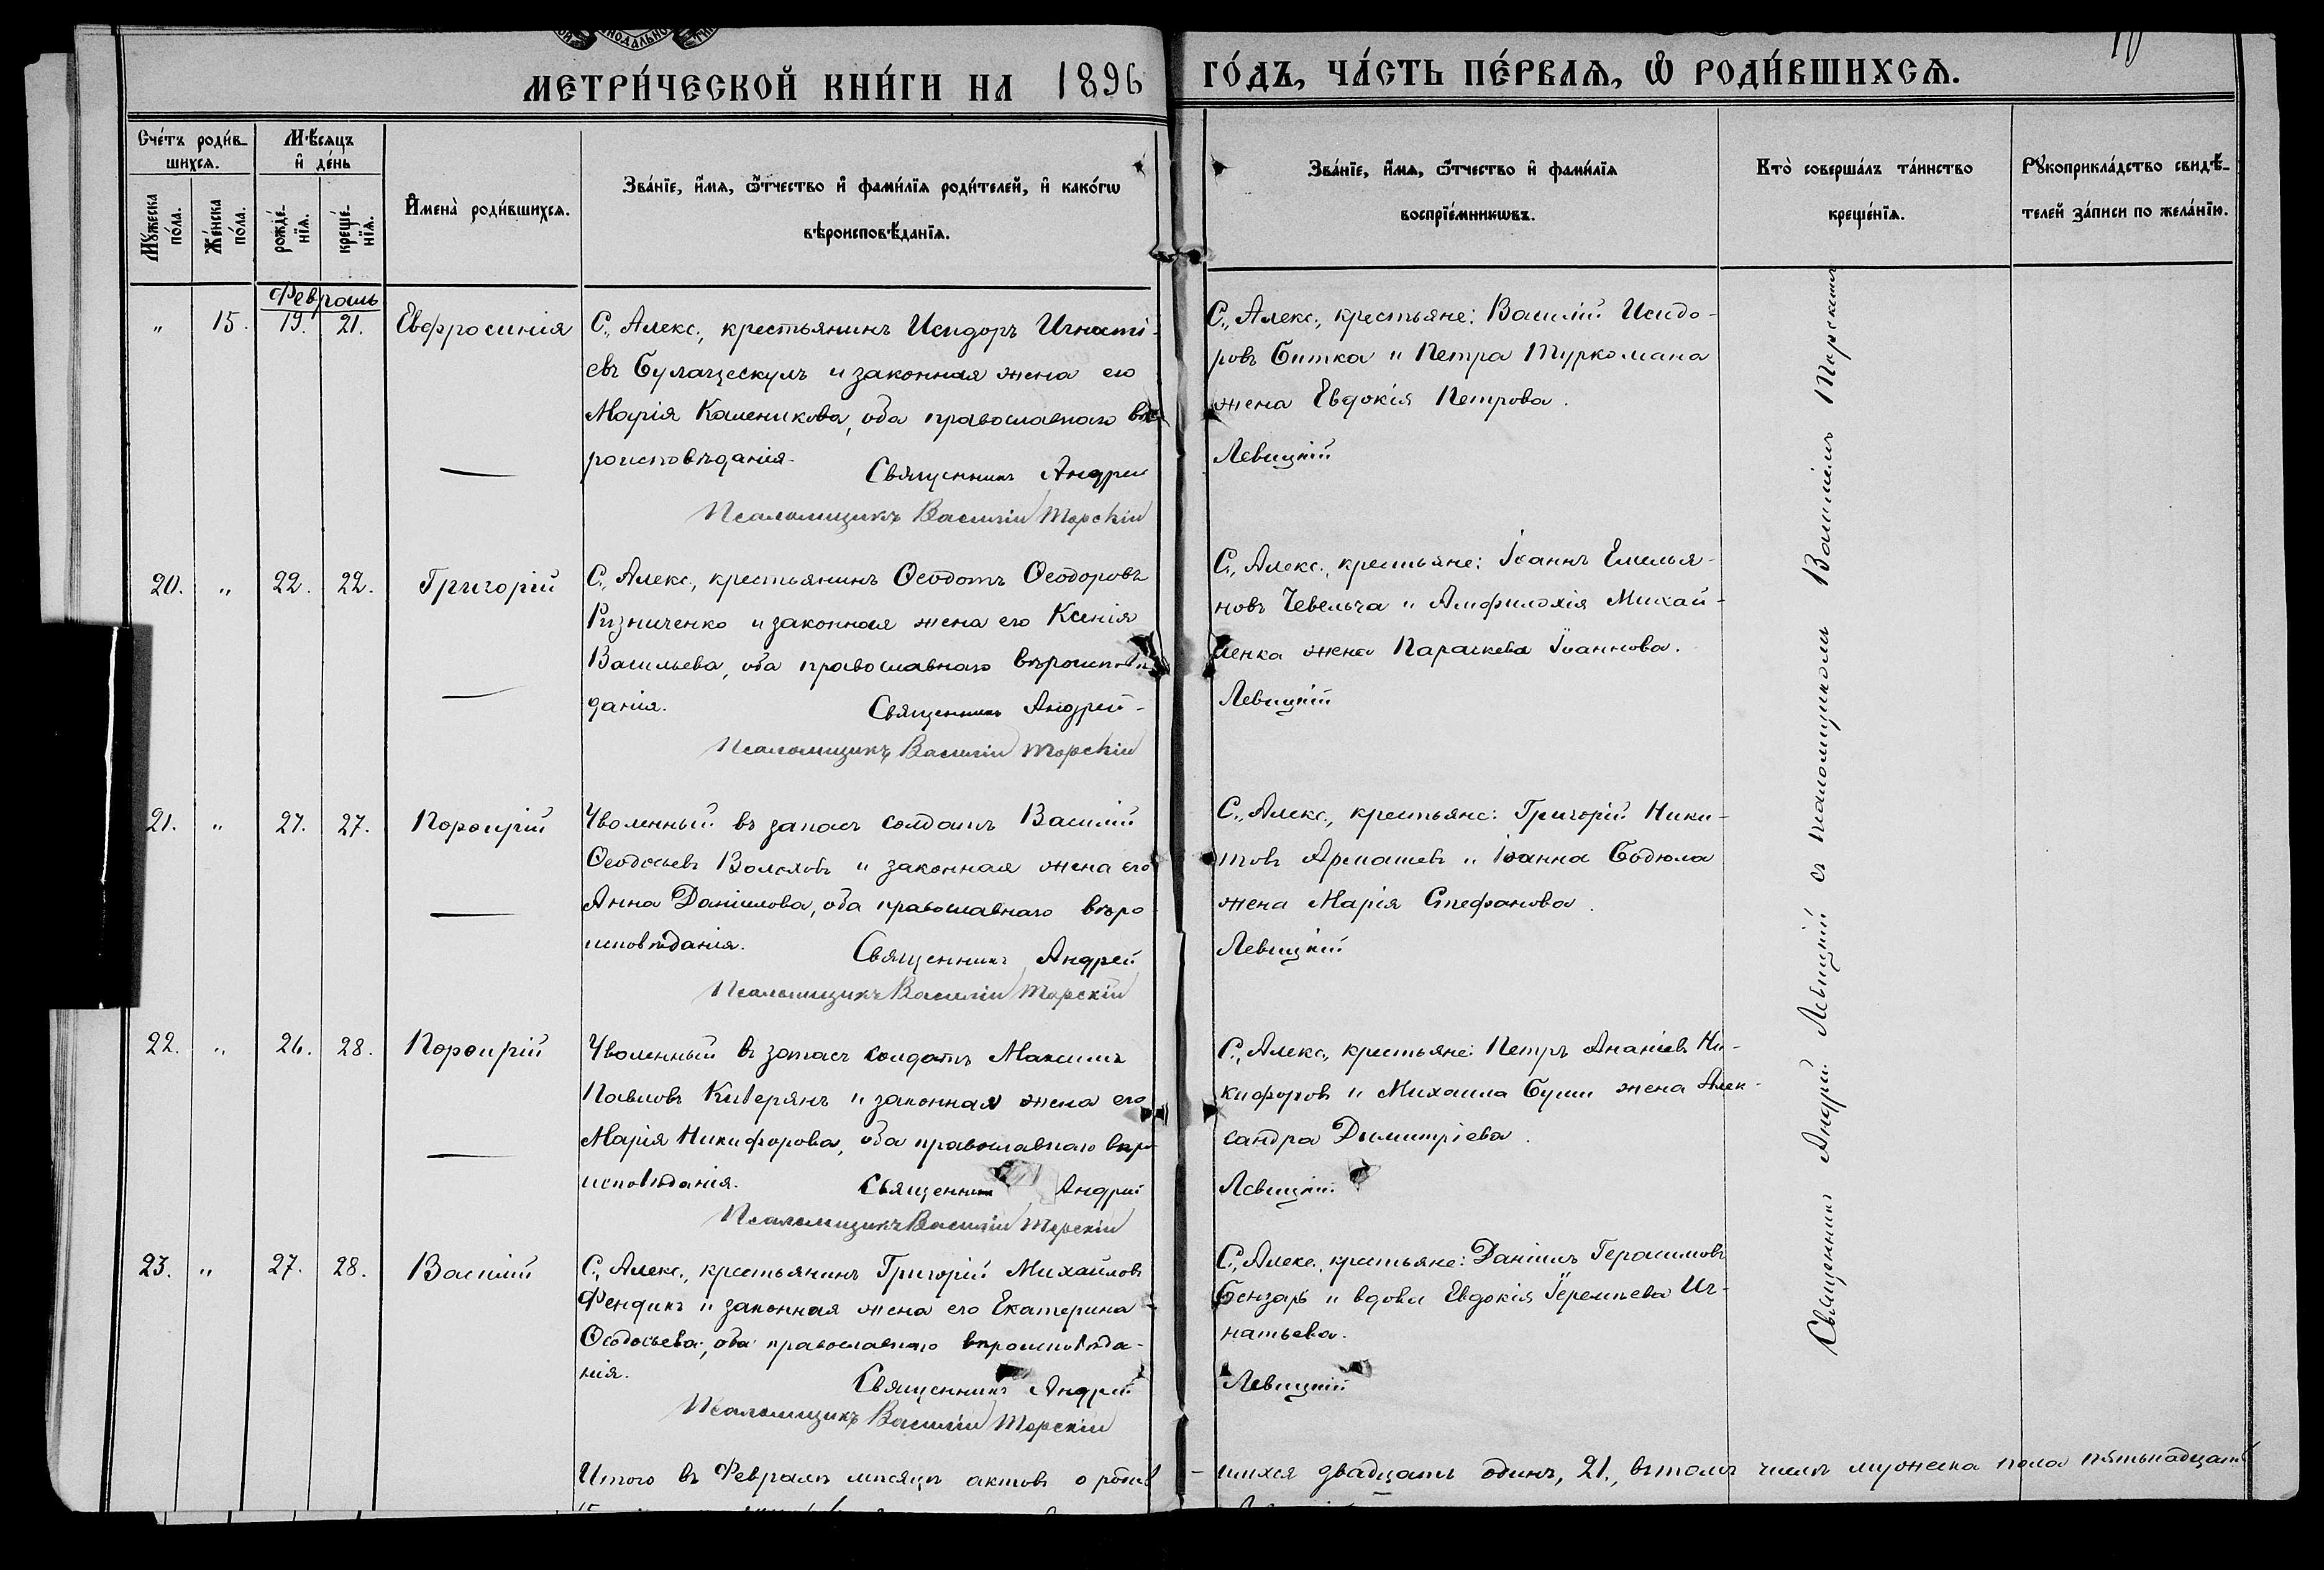 МЕТРИ́ЧЕСКОЙ КНИ́ГИ НА 1896 ГО́ДЪ, ЧА́СТЬ ПЕ́РВАѦ, Ѽ РОДИ́ВШИХСѦ.
Сче́тъ роди́в-
шихсѧ.
Мꙋ́жеска
по́ла.
Же́нска
по́ла.
Мѣ́сѧцъ
и҆ де́нь
рожде́-
нїѧ.
креще́-
нїѧ.
И҆мена̀ роди́вшихсѧ.
Зва́нїе, и҆́мѧ, ѻ҆́тчество и҆ фами́лїѧ роди́телей, и҆ како́гѡ
вѣроисповѣ́данїѧ.
Зва́нїе, и҆́мѧ, ѻ҆́тчество и҆ фами́лїѧ
воспрїе́мникѡвъ.
Кто̀ соверша́лъ та́инство
креще́нїѧ.
Рꙋкоприкла́дство свидѣ́-
телей за́писи по жела́нїю.
Февраль
" 15. 19. 21. Евфросинія
С., Алекс., крестьянинъ Исидоръ Игнаті-
евъ Булаческулъ и законная жена его
Марія Каленикова, оба православнаго вѣ-
роисповѣданія.
Священникъ Андрей
Псаломщикъ Василій Торскій
С., Алекс., крестьяне: Василій Исидо-
ровъ Битка и Петра Туркомана
жена Евдокія Петрова.
Левицкій
20. " 22. 22. Григорій
С., Алекс., крестьянинъ Ѳеодотъ Ѳеодоровъ
Ризниченко и законная жена его Ксенія
Васильева, оба православнаго вѣроисповѣ-
данія.
Священникъ Андрей-
Псаломщикъ Василій Торскій
С., Алекс., крестьяне: Іоаннъ Емелья-
новъ Чевельча и Амфилохія Михай-
ленка жена Параскева Іоаннова.
Левицкій
21. " 27. 27. Порѳирій
Уволенный въ запасъ солдатъ Василій
Ѳеодосьевъ Волоховъ и законная жена его
Анна Даніилова, оба православнаго вѣро
исповѣданія.
Священникъ Андрей
Псаломщикъ Василій Торскій
С., Алекс., крестьяне: Григорій Ники-
товъ Армашевъ и Іоанна Бодюла
жена Марія Стефанова.
Левицкій
22. " 26. 28. Порѳирій
Уволенный въ запасъ солдатъ Максимъ
Павловъ Киверянъ и законная жена его
Марія Никифорова, оба православнаго вѣро
исповѣданія.
Священникъ Андрей
Псаломщикъ Василій Торскій
С., Алекс., крестьяне: Петръ Ананіевъ Ни-
кифоровъ и Михаила Буши жена Алек-
сандра Димитріева.
Левицкій
23. " 27. 28. Василій
С., Алекс., крестьянинъ Григорій Михайловъ
Фендикъ и законная жена его Екатерина
Ѳеодосьева, оба православнаго вѣроисповѣда-
нія.
Священникъ Андрей
Псаломщикъ Василій Торскій
С., Алекс., крестьяне: Даніилъ Герасимовъ
Бензарь и вдова Евдокія Іеремпева Иг-
натьева.
Левицкій
Священникъ Андрей Левицкій съ псаломщикомъ Василіемъ Торскимъ
Итого въ Февралѣ мѣсяцѣ актовъ о родив-шихся двадцать одинъ, 21., въ томъ числѣ мужеска пола пятьнадцать